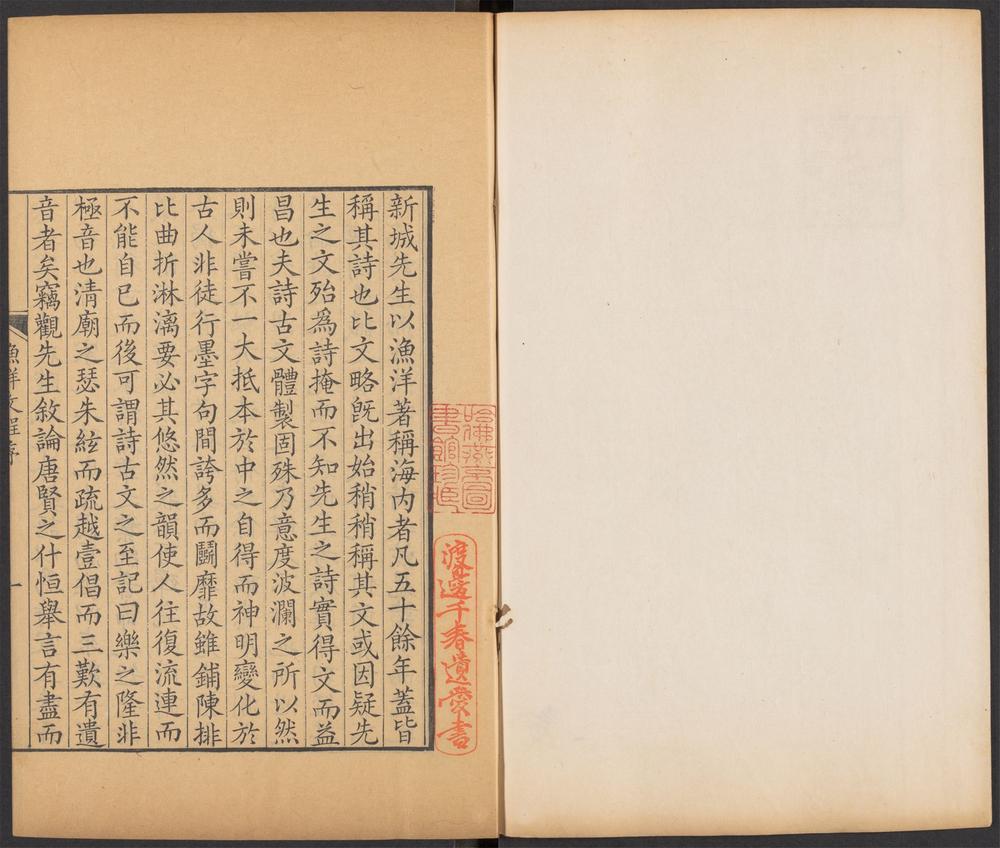 哈佛燕京圖
書館珍藏
渡邊千春遺愛書
新城先生以漁洋著稱海内者凡五十餘年蓋皆
稱其詩也比文略旣出始稍稍稱其文或因疑先
生之文殆爲詩掩而不知先生之詩實得文而益
昌也夫詩古文體製固殊乃意度波瀾之所以然
則未嘗不一大抵本於中之自得而神明變化於
古人非徒行墨字句間誇多而鬭靡故雖鋪陳排
比曲折淋漓要必其悠然之韻使人往復流連而
不能自已而後可謂詩古文之至記曰樂之隆非
極音也清廟之瑟朱絃而疏越壹倡而三歎有遺
音者矣竊觀先生敘論唐賢之什恒舉言有盡而
一